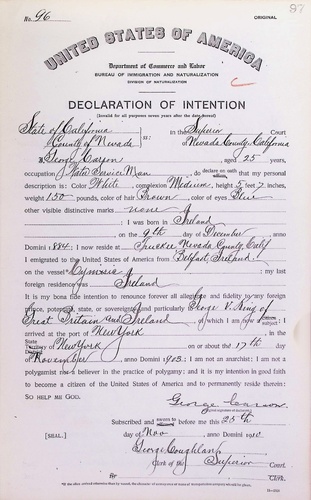 No. 96
ORIGINAL
UNITED STATES OF AMERICA
Department of Commerce and Labor
BUREAU OF IMMIGRATION AND NATURALIZATION
DIVISION OF NATURALIZATION
DECLARATION OF INTENTION
(Invalid for all purposes seven years after the date hereof)
State of California
County of Nevada ss:
In the Superior Court
of Nevada County, California
I, George Carson, aged 25 years,
occupation Water Service Man, do declare on oath that my personal
description is: Color White, complexion Medium, height 5 feet 7 inches,
weight 150 pounds, color of hair Brown, color of eyes Blue
other visible distinctive marks none
I was born in Ireland
on the 9th day of December, anno
Domini 1884; I now reside at Truckee Nevada County, Calif
I emigrated to the United States of America from Belfast, Ireland
on the vessel; my last
foreign residence was Ireland
It is my bona fide intention to renounce forever all allegiance and fidelity to any foreign
prince, potentate, state, or sovereignty, and particularly to George V. King of
Great Britain and Ireland, of which I am now a subject;
I arrived at the port of New York, in the
State of New York on or about the 17th day
of November, anno Domini 1903; I am not an anarchist; I am not a
polygamist nor a believer in the practice of polygamy; and it is my intention in good faith
to become a citizen of the United States of America and to permanently reside therein:
SO HELP ME GOD.
George Carson
Subscribed and sworn to before me this 25th
[SEAL.] day of Nov, anno Domini 1910
George Coughlan
Clerk of the Superior Court.